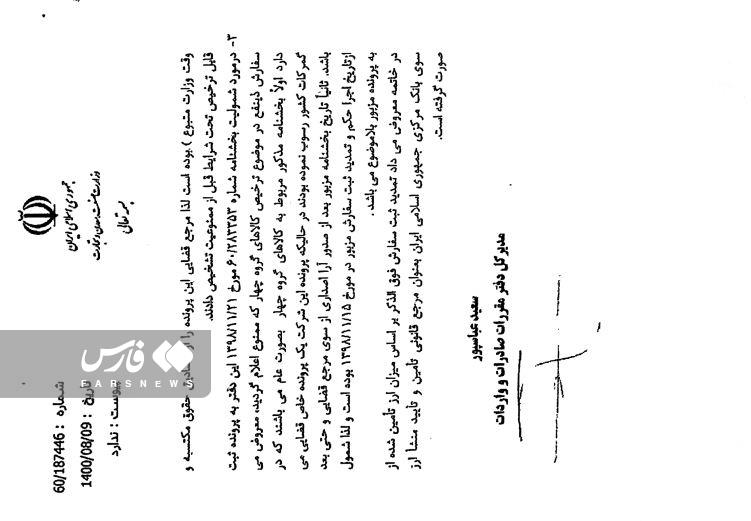 بسمه تعالی
جمهوری اسلامی ایران
وزارت صنعت، معدن و تجارت
شماره : 60/187446
تاریخ : 1400/08/09
پیوست : ندارد
وقت وزارت متبوع ) بوده است لذا مرجع قضایی این پرونده را از حقوق مکتسبه و
قابل ترخیص تحت شرایط قبل از ممنوعیت تشخیص دادند.
۳- درمورد شمولیت بخشنامه شماره ۶۰/۲۸۳۳۵۳ مورخ ۱۳۹۸/۱۱/۲۱ این دفتر به پرونده ثبت
سفارش ذینفع در موضوع ترخیص کالاهای گروه چهار که ممنوع اعلام گردید، معروض می
دارد اولاً بخشنامه مذکور مربوط به کالاهای گروه چهار بصورت عام می باشند که در
گمرکات کشور رسوب نموده بودند در حالیکه پرونده این شرکت یک پرونده خاص قضایی می
باشد. ثانیاً تاریخ بخشنامه مزبور بعد از صدور آرا اصداری از سوی مرجع قضایی و حتی بعد
ازتاریخ اجرا حکم و تمدید ثبت سفارش مزبور در مورخ ۱۳۹۸/۱۱/۱۵ بوده است و لذا شمول
به پرونده مزبور بلاموضوع می باشد.
در خاتمه معروض می دارد تمدید ثبت سفارش فوق الذکر بر اساس میزان ارز تأمین شده از
سوی بانک مرکزی جمهوری اسلامی ایران بعنوان مرجع قانونی تأمین و تأیید منشأ ارز
صورت گرفته است.
سعید عباسپور
مدیر کل دفتر مقررات صادرات و واردات
فارس
FARSNEWS